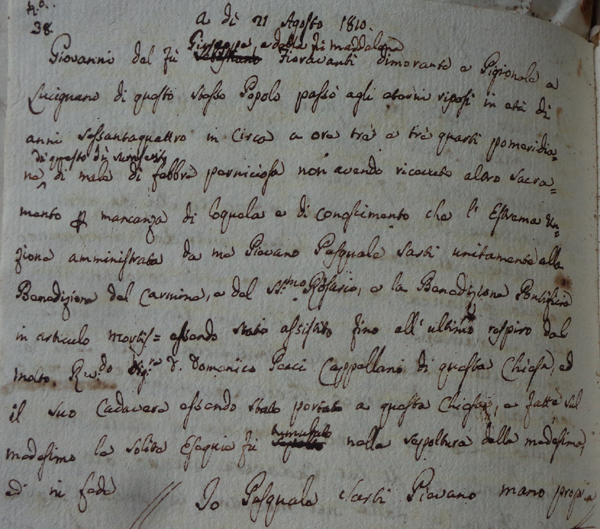 N.o
38.
A di 21 Agosto 1810.
Giuseppe, e della fu Maddalena
Giovanni del fù Fioravanti dimorante a Pigionale a
Lucignano di questo stesso Popolo passò agli eterni riposi in età di
anni sessantaquattro in circa a ore trè e trè quarti pomeridia=
di questo dì
ne di mala di febbre perniciosa non avendo ricevuto altro Sacra=
mento p mancanza di loquela e di conoscimento che l'Estrema Un=
zione amministrata da me Piovano Pasquale Sarti unitamente alla
Benedizione del Carmine, e del SS.mo Rosario, e la Benedizione Pontificia
in articulo mortis= essendo stato assistito fino all'ultimo respiro dal
molto Rv.do Sig.re D. Domenico Pacci Cappellano di questa Chiesa, ed
il suo Cadavere essendo stato portato a questa chiesa, e fatte sul
tumulato
medesimo le solite Esequie fù nella seppoltura della medesima,
ed in fede
Io Pasquale Sarti Piovano mano propria